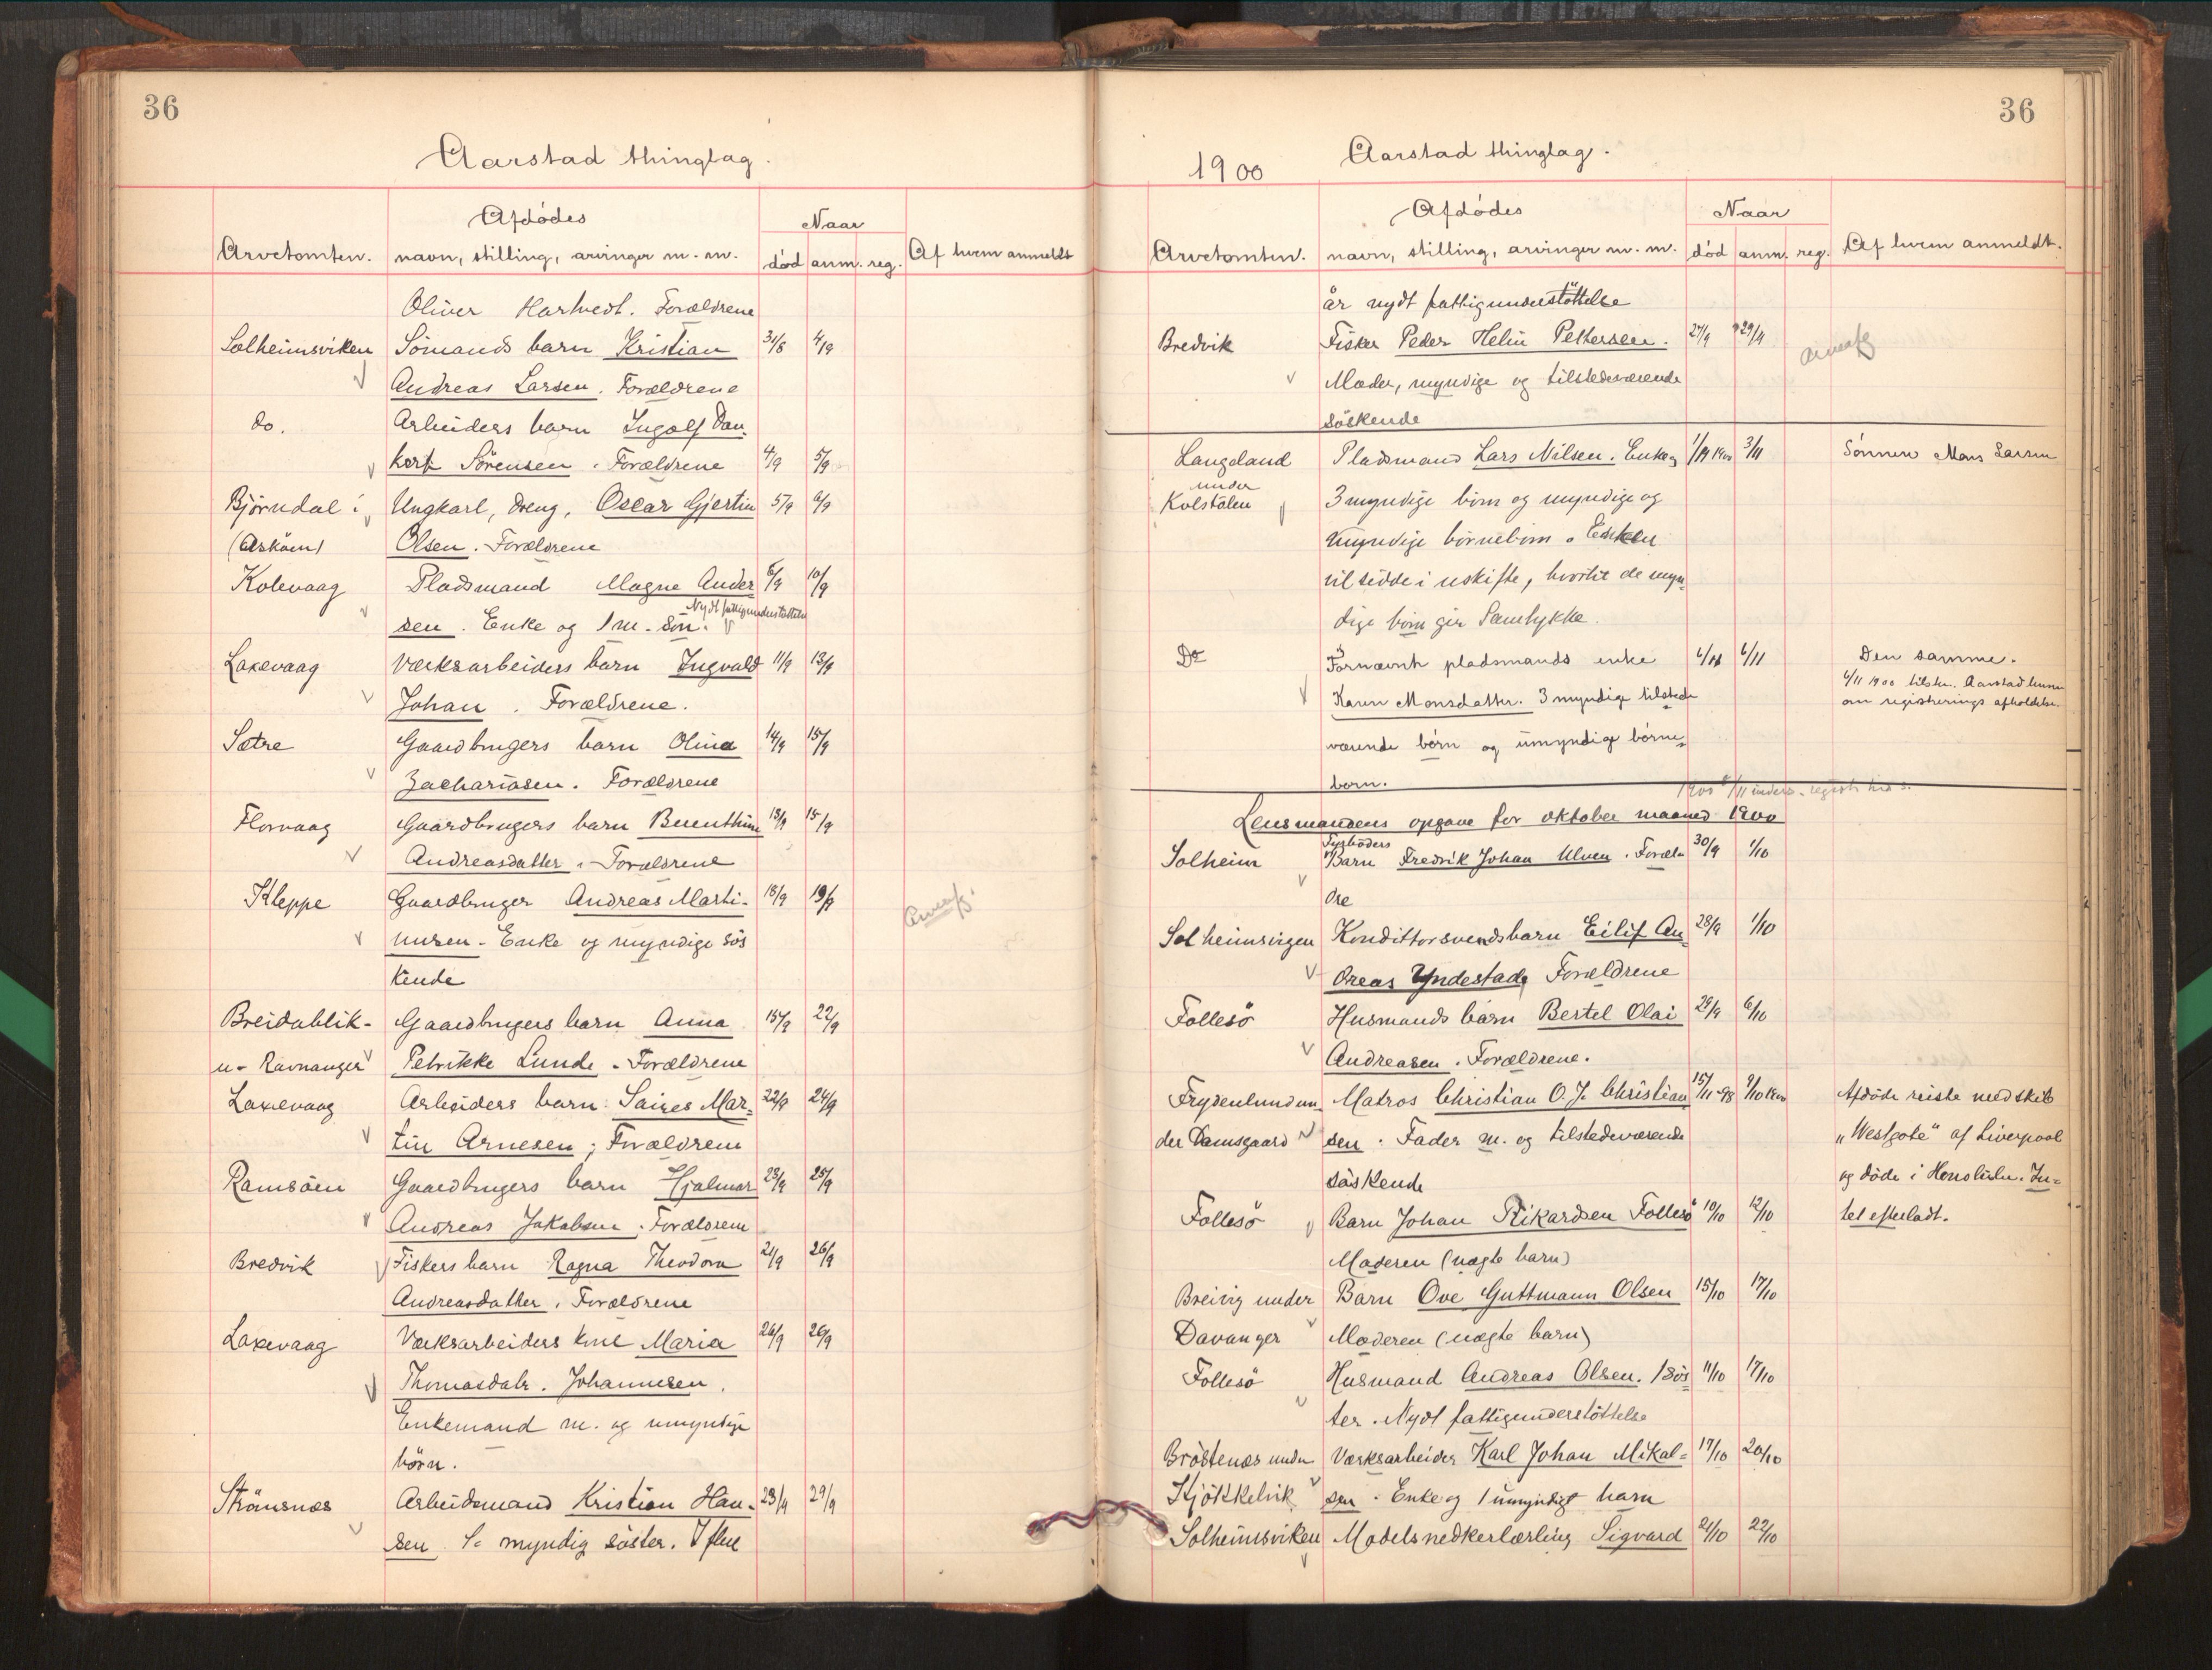 36
Aarstad thinglag.
Afdödes
Naar
Arvetomten. navn, stilling, arvinger m. m. död anm. reg. Af hvem anmeldt
Oliver Hartvedt. Forældrene
Solheimsviken Sömands barn Kristian 31/8 4/9
Andreas Larsen. Forældrene
do. Arbeiders barn Ingolf Dan-
kert Sörensen. Forældrene 4/9 5/9
Björndal i Ungkarl, dreng, Oscar Gjertin 5/9 6/9
(Asköen) Olsen. Forældrene
Kolevaag Pladsmand Magne Ander- 6/9 10/9
Nydt fattigunderstöttelse
sen. Enke og 1 m. sön.
Laxevaag Værksarbeiders barn Ingvald 11/9 13/9
Johan. Forældrene.
Sætre Gaardbrugers barn Olina 14/9 15/9
Zachariasen. Forældrene
Florvaag Gaardbrugers barn Berenthine 13/9 15/9
Andreasdatter. Forældrene
Kleppe Gaardbruger Andreas Marti- 18/9 19/9
nusen. Enke og myndige sös
kende
Breidablik- Gaardbrugers barn Anna 15/9 22/9
u. Ravnanger Petrikke Lunde. Forældrene
Laxevaag Arbeiders barn Saizes Mar- 22/9 24/9
tin Arnesen; Forældrene
Ramsöen Gaardbrugers barn Hjalmar 23/9 25/9
Andreas Jakobsen. Forældrene
Bredvik Fiskers barn Ragna Theodora 21/9 26/9
Andreasdatter. Forældrene
Laxevaag Værksarbeiders kone Maria 26/9 26/9
Thomasdatr. Johannesen.
Enkemand m. og umyndige
börn.
Strömsnes Arbeidsmand Kristian Han- 23/9 29/9
sen. 1 myndig söster. I flere
36
1900
Aarstad thinglag.
Afdödes
Naar
Arvetomten. navn, stilling, arvinger m. m. död anm. reg. Af hvem anmeldt.
år nydt fattigunderstöttelse
Bredvik Fisker Peder Helin Pettersen. 27/9 29/9
Moder, myndige og tilstedeværende
söskende
Langeland Pladsmand Lars Nilsen. Enke og 1/11 1900 3/11 Sönnen Mons Larsen
under
Kolstölen 3 myndige börn og myndige og
umyndige börnebörn. Enken
vil sidde i uskifte, hvortil de myn-
dige börn gir Samtykke.
Do Fornævnte pladsmands enke 6/11 6/11 Den samme.
Karen Monsdatter. 3 myndige tilstede 6/11 1900 tilskr. Aarstad lensm
om registrerings afholdelse.
værende börn og umyndige börne-
börn.
Lensmandens opgave for oktober maaned 1900
Fyrböders
Solheim Barn Fredrik Johan Ulven. Foræl- 30/9 1/10
dre
Solheimsvigen Kondittorsvends barn Eilif An- 28/9 1/10
dreas Yndestad. Forældrene
Follesö Husmands barn Bertel Olai 29/9 6/10
Andreasen. Forældrene.
Frydenlund un- Matros Christian O. J. Christian 15/11 98 9/10 1900 Afdöde reiste med skib
der Damsgaard sen. Fader m. og tilstedeværende "Westgate" af Liverpool
söskende og döde i Honolulu. In-
Follesö Barn Johan Rikardsen Follesö 10/10 12/10 tet efterladt.
Moderen (uægte barn)
Breivig under Barn Ove Guttmann Olsen 15/10 17/10
Davanger Moderen (uægte barn)
Follesö Husmand Andreas Olsen. 1 sös- 11/10 17/10
ter. Nydt fattigunderstöttelse
Bröstenæs under Værksarbeider Karl Johan Mikal- 17/10 20/10
Kjökkelvik sen. Enke og 1 umyndigt barn
Solheimsviken Modelsnedkerlærling Sigvard 21/10 22/10